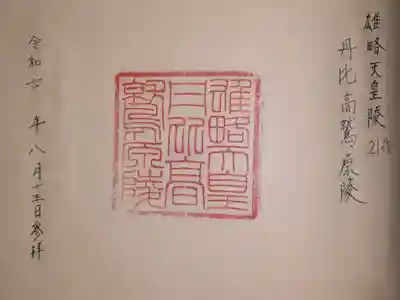 雄略天皇陵 21代
丹比高鷲原陵
雄略天皇
丹比高
鷲原陵
令和 年八月十五日参拝